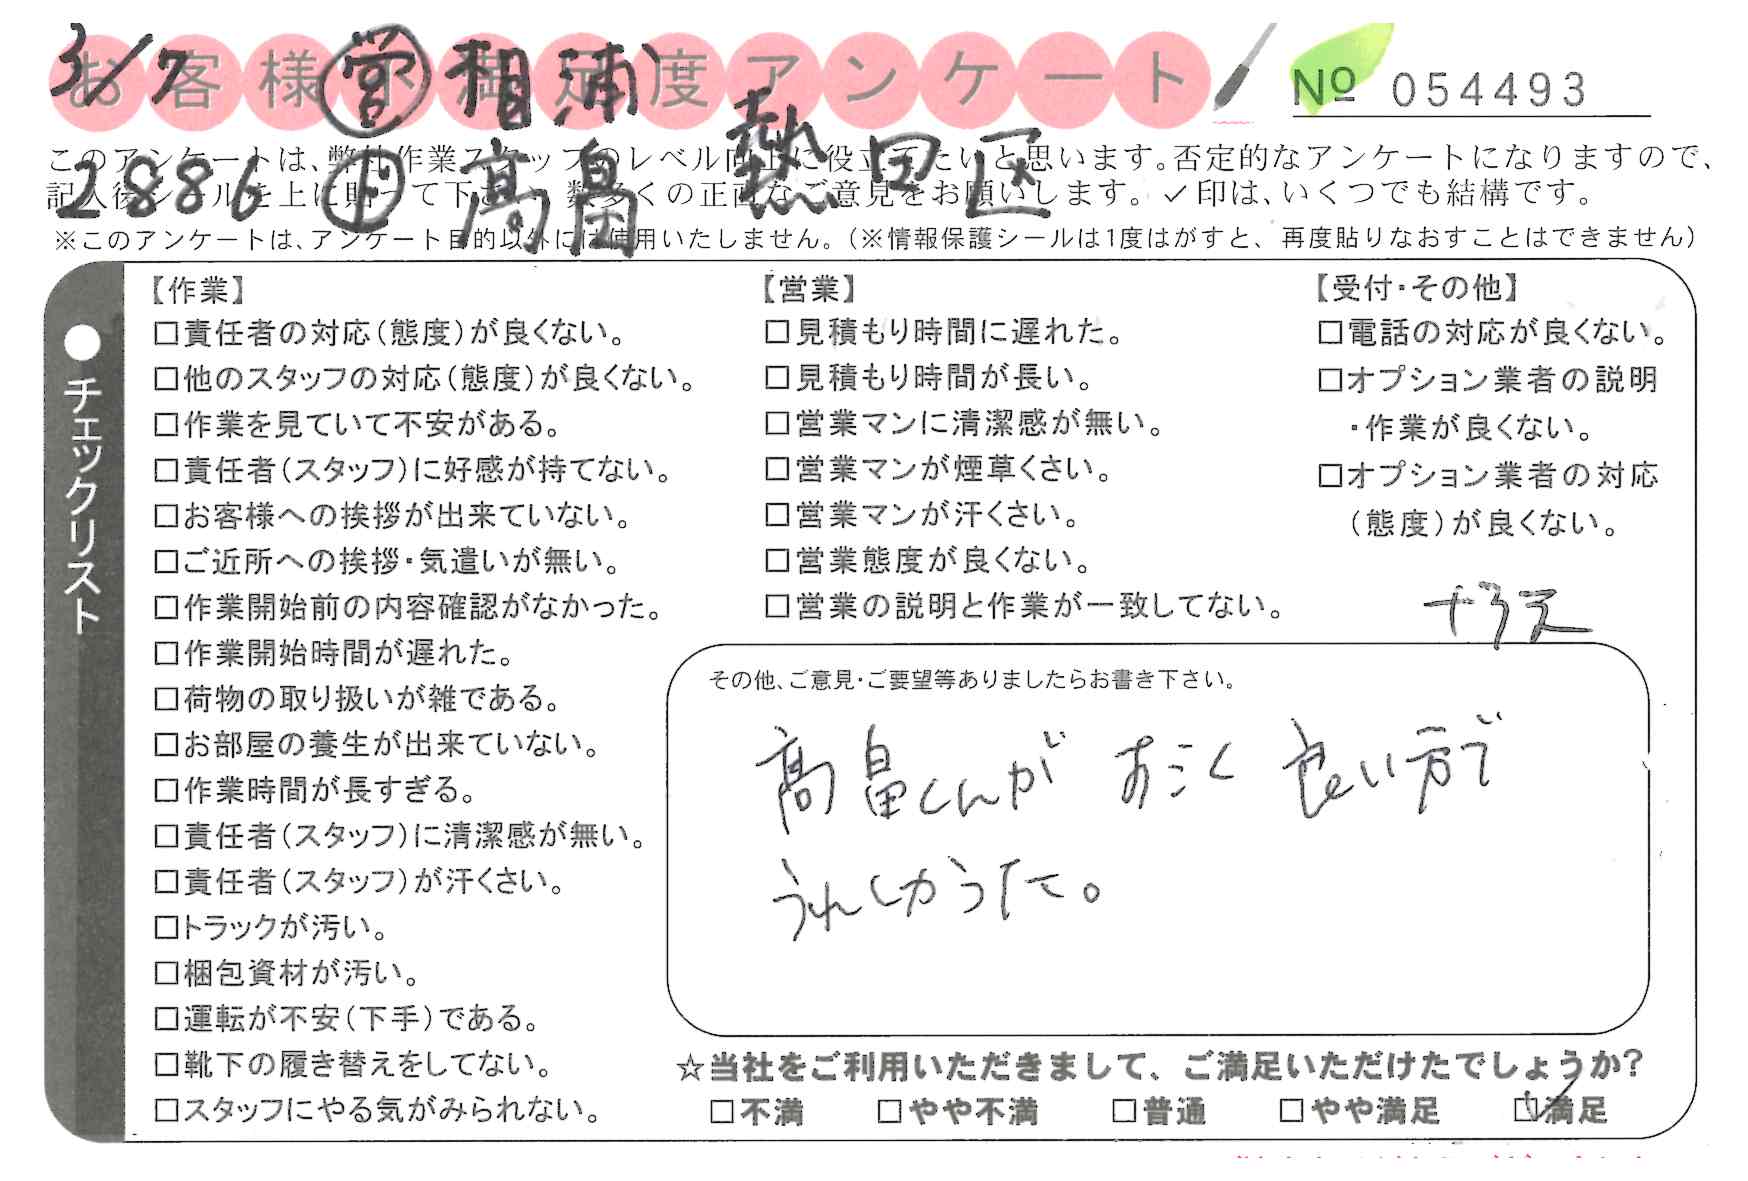 3/7 営 相浦
お客様不満足度アンケート
No 054493
2886 高畠 熱田区
このアンケートは、弊社作業スタッフのレベル向上に役立てたいと思います。否定的なアンケートになりますので、
記入後シールを上に貼って下さい。数多くの正直なご意見をお願いします。✓印は、いくつでも結構です。
※このアンケートは、アンケート目的以外には使用いたしません。（※情報保護シールは1度はがすと、再度貼りなおすことはできません）
●チェックリスト
【作業】
□責任者の対応（態度）が良くない。
□他のスタッフの対応（態度）が良くない。
□作業を見ていて不安がある。
□責任者（スタッフ）に好感が持てない。
□お客様への挨拶が出来ていない。
□ご近所への挨拶・気遣いが無い。
□作業開始前の内容確認がなかった。
□作業開始時間が遅れた。
□荷物の取り扱いが雑である。
□お部屋の養生が出来ていない。
□作業時間が長すぎる。
□責任者（スタッフ）に清潔感が無い。
□責任者（スタッフ）が汗くさい。
□トラックが汚い。
□梱包資材が汚い。
□運転が不安（下手）である。
□靴下の履き替えをしてない。
□スタッフにやる気がみられない。
【営業】
□見積もり時間に遅れた。
□見積もり時間が長い。
□営業マンに清潔感が無い。
□営業マンが煙草くさい。
□営業マンが汗くさい。
□営業態度が良くない。
□営業の説明と作業が一致してない。
【受付・その他】
□電話の対応が良くない。
□オプション業者の説明
・作業が良くない。
□オプション業者の対応
（態度）が良くない。
その他、ご意見・ご要望等ありましたらお書き下さい。
高畠くんが すごく 良い方で
うれしかった。
☆当社をご利用いただきまして、ご満足いただけたでしょうか？
□不満 □やや不満 □普通 □やや満足 ☑満足